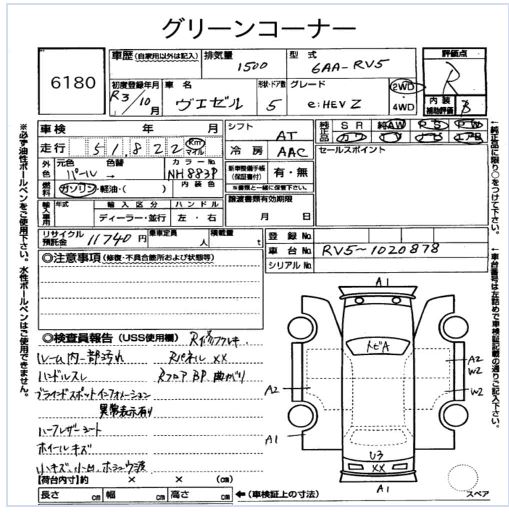 グリーンコーナー
6180
車歴 (自家用以外は記入) 排気量 1500 型式 6AA-RV5 評価点 R
初度登録年月 R3/10月 車名 ヴェゼル 形状・ドア数 5 グレード e:HEV Z 2WD・4WD 内装補助評価 B
車検 年 月 シフト AT 純正品 SR AW PS PW
走行 51,822 Km マイル 冷房 AAC
セールスポイント
外色 元色 パール → 色替 カラーNo. NH883P 新車整備手帳(保証書付) 有・無
燃料 ガソリン・軽油・( ) 内装色 ※書類と一緒に保管下さい
輸入車用 年式 輸入区分 ディーラー・並行 ハンドル 左・右 譲渡書類有効期限 月 日
リサイクル預託金 11740円 乗車定員 人 積載量 登録No.
車台No. RV5-1020878
シリアルNo.
◎注意事項 (修復・不具合箇所および状態等)
◎検査員報告 (USS使用欄)
ルーム内一部汚れ Rパネル XX
ハンドルスレ Rフロア BP 曲がり
ブラインドスポットインフォメーション
異常表示有り
ハーフレザーシート
ホイールキズ
小キズ、小凹
【荷台内寸】約 × × (cm)
長さ cm 幅 cm 高さ cm ←(車検証上の寸法)
A1
トビA
A2
W2
A2
W2
A1
U3
XX
A1
スペア
※必ず油性ボールペンをご使用下さい。水性ボールペンはご使用できません。
←純正品に限り○をつけて下さい。
←車台番号は左詰めで車検証記載の通りご記入下さい。